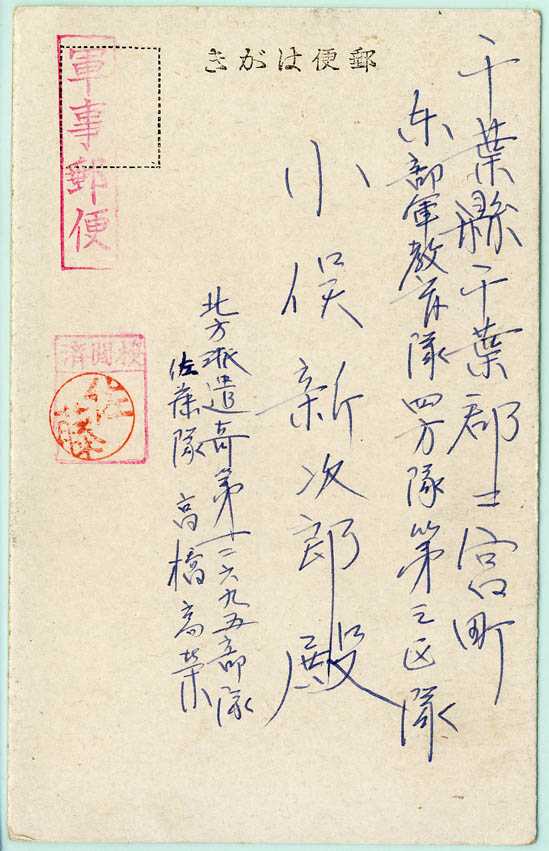 郵便はがき
千葉縣千葉郡二宮町
東部軍教育隊四方隊第三区隊
小俣新次郎殿
北方派遣奇第一二六九五部隊
佐藤隊 高橋高榮
軍事郵便
検閲済
佐藤